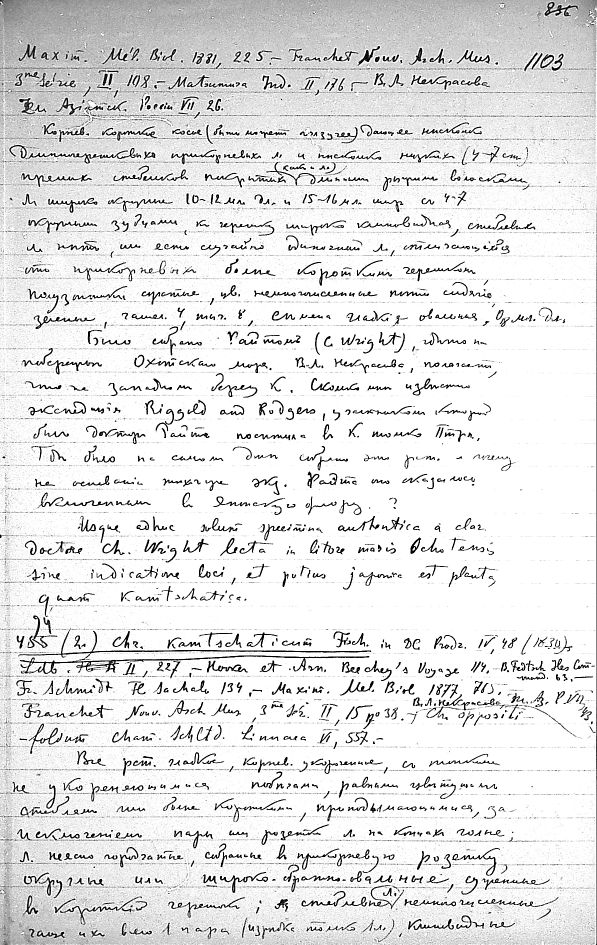 836
Maxim. Mél. Biol. 1881, 225. – Franchet Nouv. Arch. Mus. 1103
3me série, II, 108. – Matsumura Ind. II, 176 – В.Л. Некрасова
Азіятск. Россіи VII, 26.
Корнев. короткое косое (быть может ползучее) дающее нисколько
длинночерешковых прикорневых л. и нисколько низких (4–7 cm)
прямых стебельков покрытых (как и л.) длинными рыжими волосками,
л. широко округлые 10–12 мм. дл. и 15–16 мм. шир. с 4–7
округлыми зубцами, к черешку широко клиновидная, стеблевых
л. нить, или есть случайно одиночный л., отличающийся
от прикорневых более коротким черешком,
полузонтики сжатые, цв. немногочисленные почти сидячие
зеленые, чашел. 4, тыч. 8, семена гладкия овальныя, 0,8 мм. дл.
Было собрано Райтом (C. Wright), где-то на
побережьи Охотскаго моря. В.Л. Некрасова, полагает,
что на западном берегу К. Сколько мне известно
экспедиція Riggold and Rodgers, участником которой
был доктор Райт посетила в К. только Птрп.
Где было на самом деле собрано это раст. и почему
на основании экз. Райта оно оказалось
включенным в Японскую флору. ?
Usque adhuc solum specimina authentica a clar.
doctore Ch. Wright lecta in litore maris Ochotensis
sine indicatione loci, et potius japonica est planta,
quam Kamtschatica.
24
485 (2.) Chr. kamtschaticum Fisch. in DC Prodr. IV, 48 (1830).
Ldb. Fl. II, 227. – Hooker et Arn. Beechey's Voyage 114. – B. Fedtsch. Iles Com-
mand. 63. –
Fr. Schmidt Fl. Sachal. 134. – Maxim. Mel. Biol. 1877, 765.
В.Л. Некрасова, Фл. Аз. Р. VII
Franchet Nouv. Arch. Mus. 3me Sér. II, 15 no 38. – Chr. oppositi-
-folium Cham. Schltd. Linnaea VI, 557. –
Все раст. гладкое, корнев. укороченное, с тонкими
не укореняющимися побегами, равными цветущим
стеблям или более короткими, приподымающимися, за
исключением пары или розетки л. на концах голые;
л. неясно городчатые, собранные в прикорневую розетку,
округлые или широко-обратно-овальные, суженные
в короткий черешок; стеблевые л. немногочисленные,
чаще их всего 1 пара (изредка только 1 л.), клиновидные